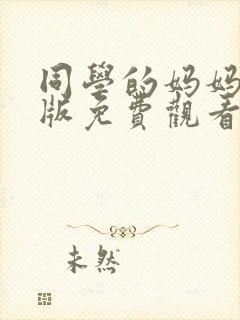 同學的妈妈
版免費觀看
未然